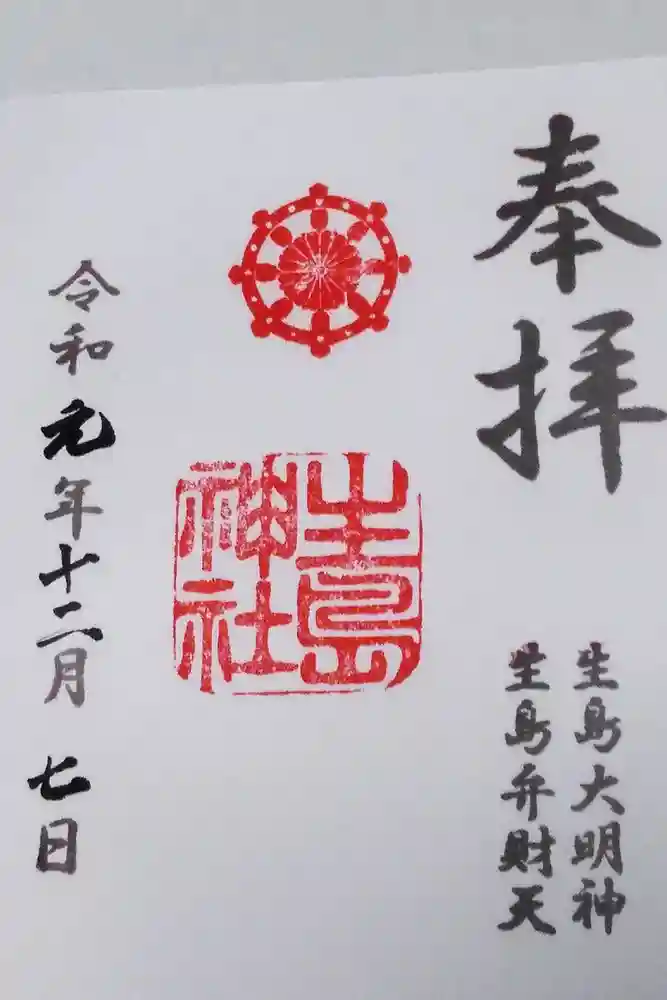 奉拝
生島大明神
生島弁財天
生島神社
令和元年十二月七日